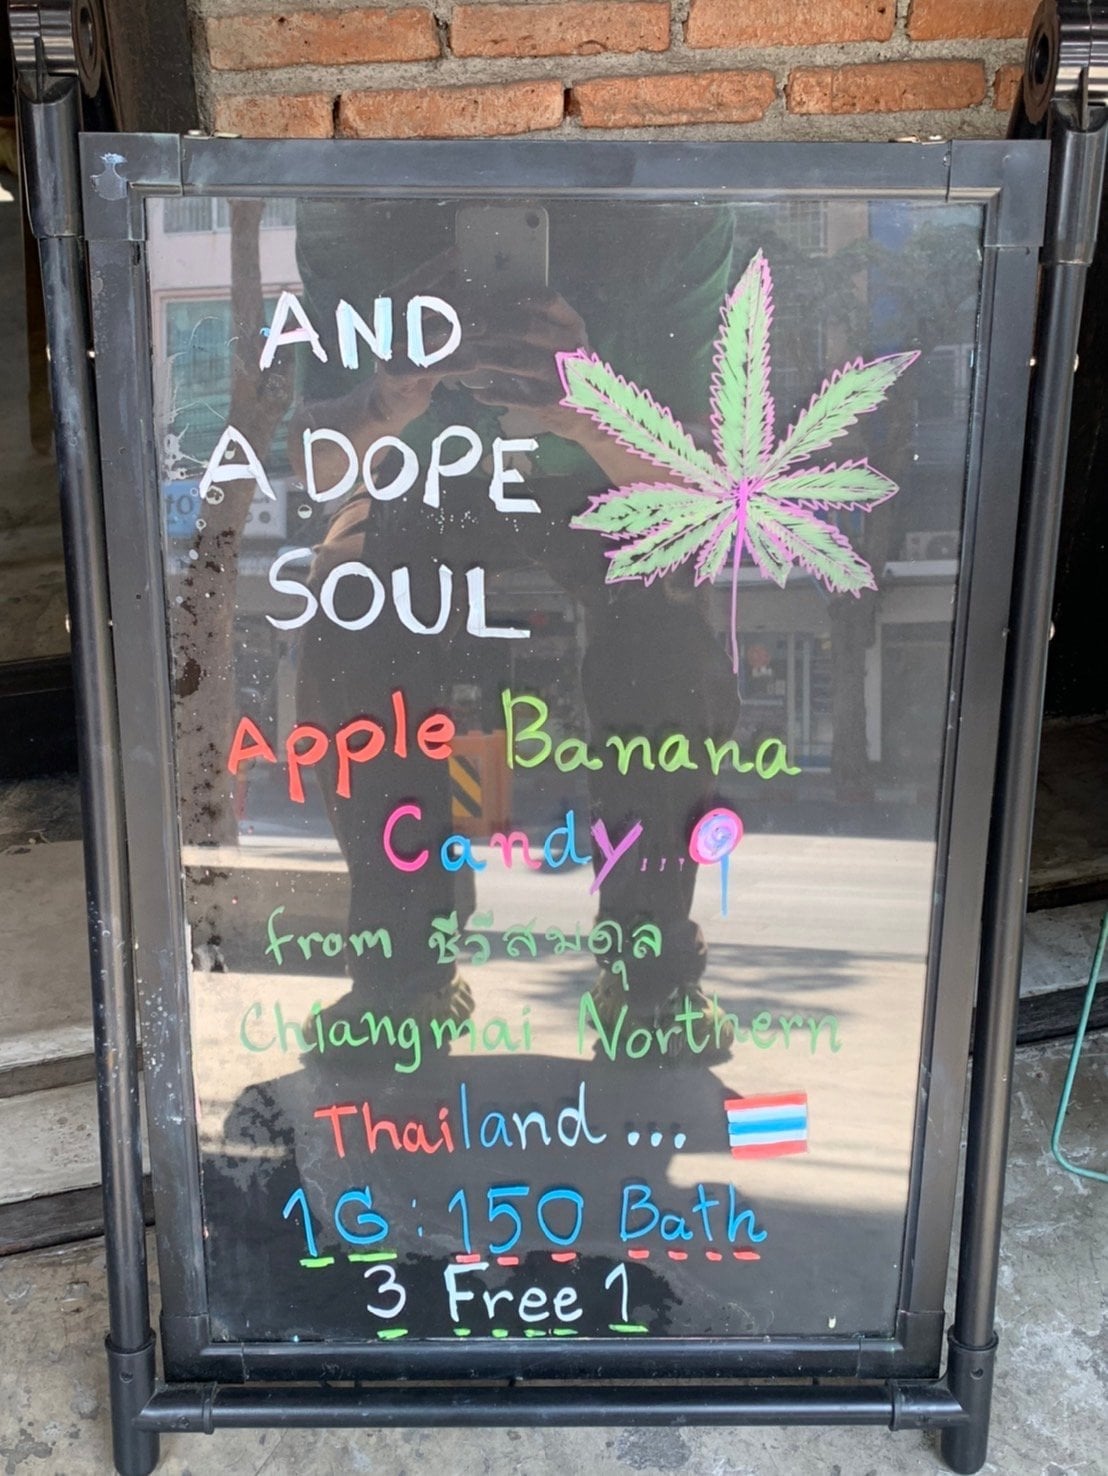 AND
A DOPE
SOUL
Apple Banana
Candy...
from ชีวีสมดุล
Chiangmai Northern
Thailand...
1G : 150 Bath
3 Free 1